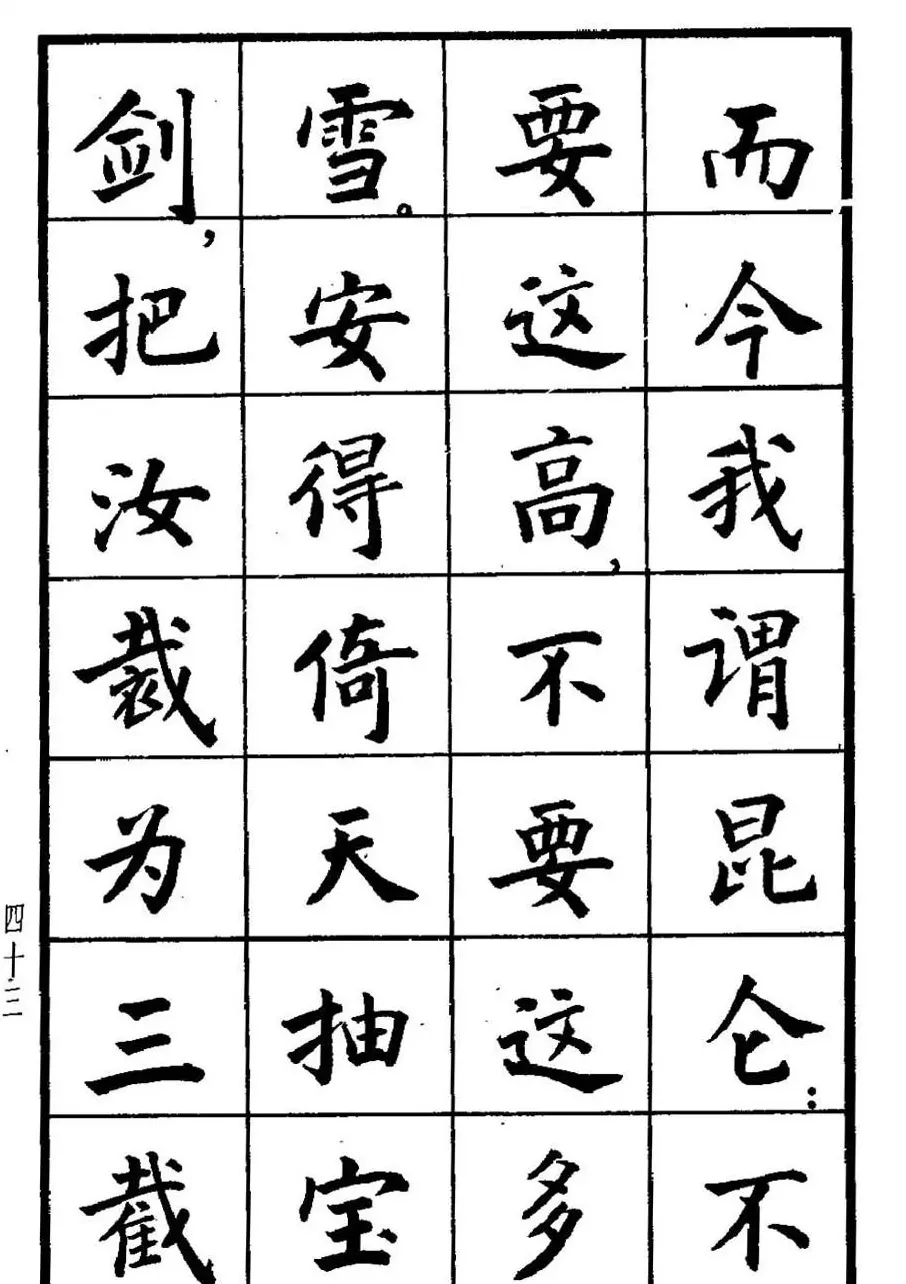 而今我谓昆仑：不
要这高，不要这多
雪。安得倚天抽宝
剑，把汝裁为三截
四十三